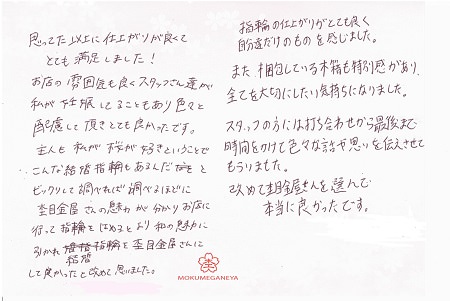 思ってた以上に仕上がりが良くて
とても満足しました！
お店の雰囲気も良くスタッフさん達が
私が妊娠してることもあり色々と
配慮して頂きとても良かったです。
主人も私が桜が好きということで
こんな結婚指輪もあるんだなと
ビックリして調べれば調べるほどに
杢目金屋さんの魅力が分かりお店に
行って指輪をはめるとより和の魅力に
引かれ指輪を杢目金屋さんに
結婚
して良かったと改めて思いました。
指輪の仕上がりがとても良く
自分達だけのものを感じました。
また梱包している木箱も特別感があり、
全てを大切にしたい気持ちになりました。
スタッフの方には打ち合わせから最後まで
時間をかけて色々な話や思いを伝えさせて
もらいました。
改めて杢目金屋さんを選んで
本当に良かったです。
MOKUMEGANEYA